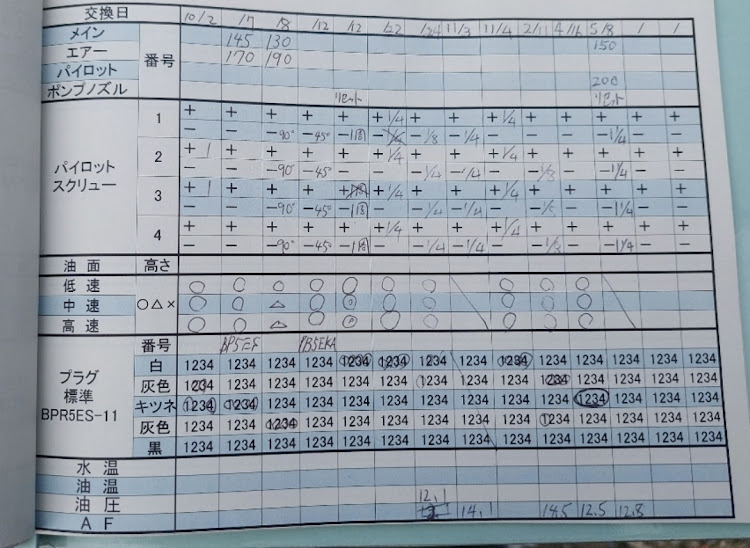 交換日 10/2 1/7 1/8 1/12 1/12 1/22 1/24 11/3 11/4 2/11 4/16 5/8 / /
メイン 145 130 150
エアー 170 190
パイロット 番号 200
ポンプノズル リセット リセット
1 + + + + + +1/4 + + + + + + + +
- - -90° -45° -1周 -1/4 -1/8 -1/4 - - - -1/4 - -
パイロット 2 +1 + + + + +1/4 + + +1/4 + + + + +
スクリュー - - -90° -45° -1周 - -1/4 -1/4 - -1/8 - -1/4 - -
3 +1 + + + + +1/4 + + +1/4 + + + + +
- - -90° -45° -1周 - -1/4 -1/4 - -1/8 - -1/4 - -
4 + + + + + +1/4 + + +1/4 + + + + +
- - -90° -45 -1周 - -1/4 -1/4 - -1/8 - -1/4 - -
油面 高さ
低速 ○ ○ ○ ○ ○ ○ ○ ○ ○ ○
中速 ○△× ○ ○ △ ○ ◎ ○ ○ ○ ○ ○
高速 ○ ○ △ ○ ◎ ○ ○ ○ ○ ○
番号 BP5ES BP5EKA
白 1234 1234 1234 1234 1234 1234 1234 1234 1234 1234 1234 1234 1234 1234
プラグ 灰色 1234 1234 1234 1234 1234 1234 1234 1234 1234 1234 1234 1234 1234 1234
標準 キツネ 1234 1234 1234 1234 1234 1234 1234 1234 1234 1234 1234 1234 1234 1234
BPR5ES-11 灰色 1234 1234 1234 1234 1234 1234 1234 1234 1234 1234 1234 1234 1234 1234
黒 1234 1234 1234 1234 1234 1234 1234 1234 1234 1234 1234 1234 1234 1234
水温
油温
油圧 12.1
AF 14.1 14.5 12.5 12.8